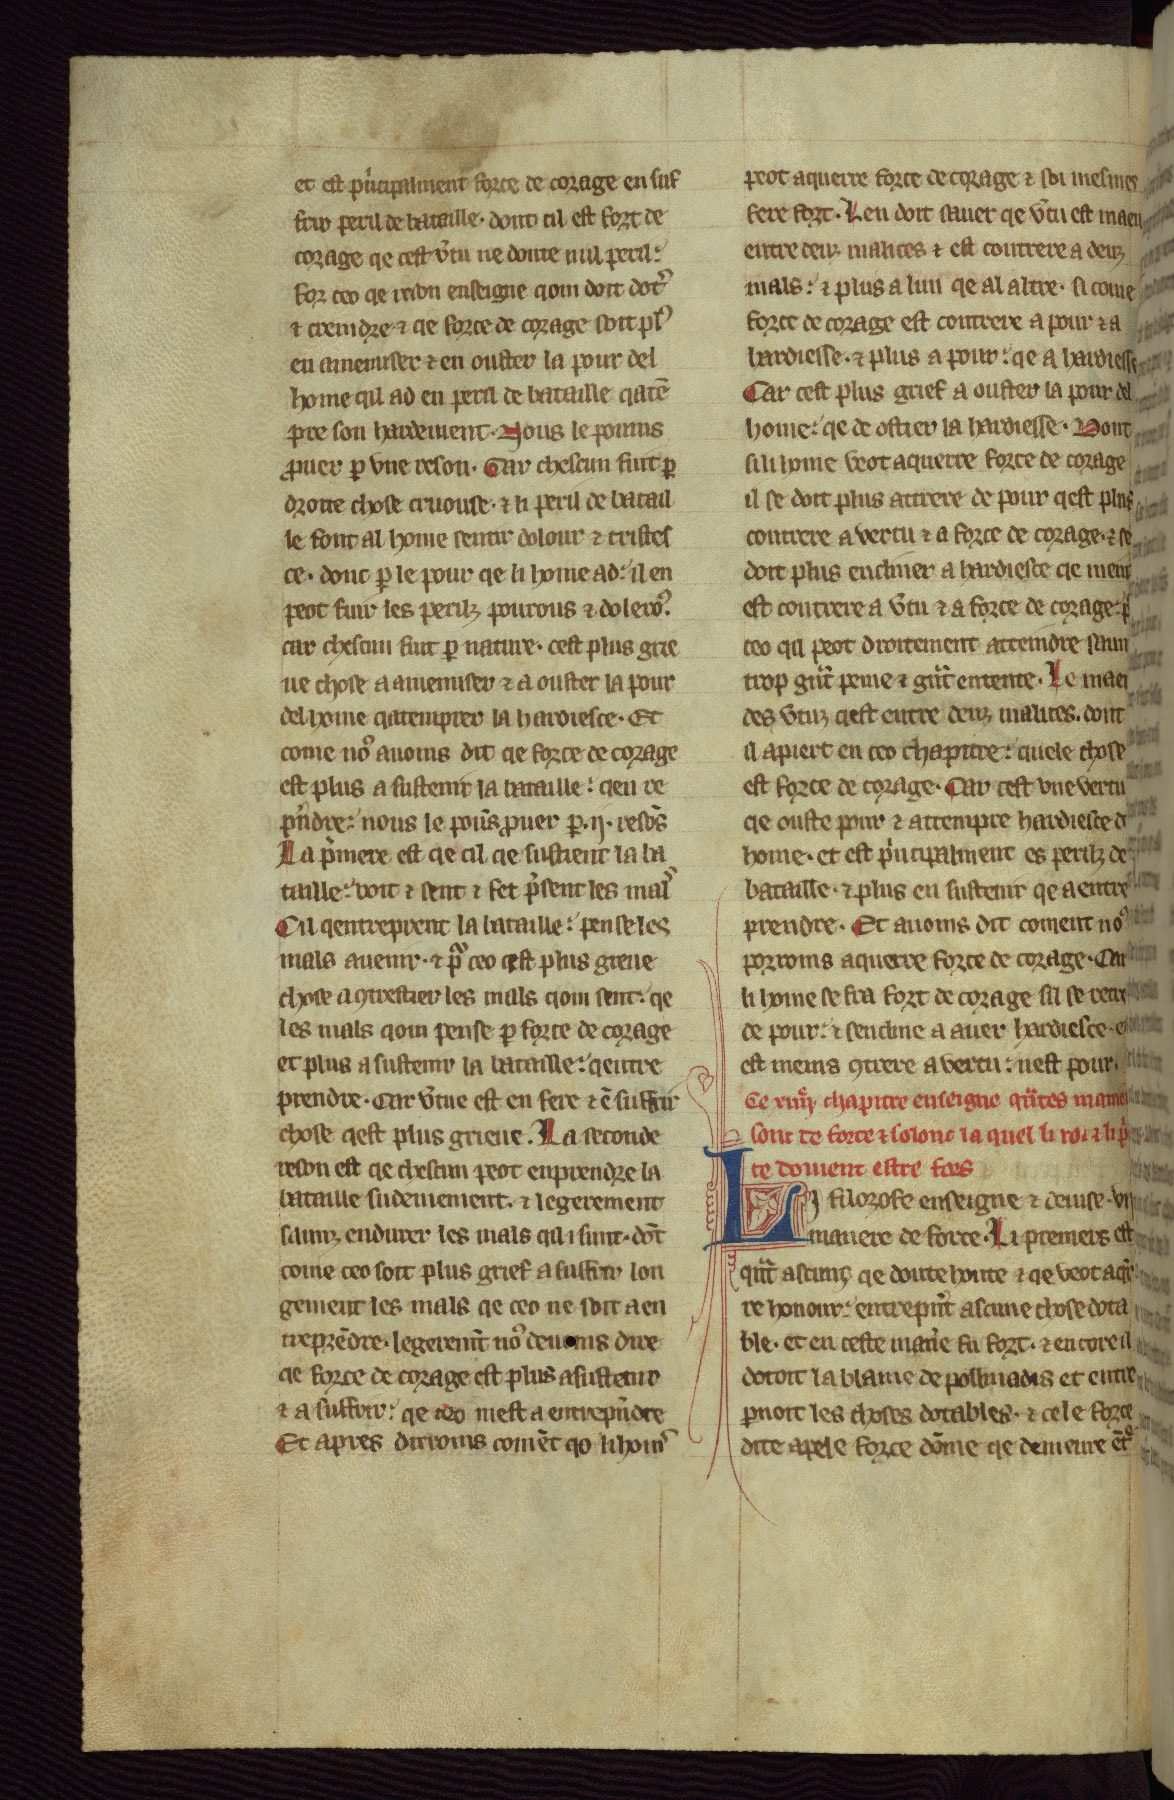 et est p'ncipalment force de corage en suf
frir peril de bataille · dont cil est fort de
corage qe cest v̾tu ne doute nul peril :
for ceo qe reson enseigne qom doit dotᷣ
⁊ creindre ⁊ qe force de corage soit pl᷒
en amenuser ⁊ en ouster la pour del
home qil ad en peril de bataille qatē
pre son hardement · Nous le poums
ꝓuer ꝑ vne reson · Car chescun fuit ꝑ
droite chose cruouse · ⁊ li peril de batail
le font al home sentir dolour ⁊ tristes
ce · dont ꝑ le pour qe li home ad : il en
peot fuir les perilz pourous ⁊ dolero᷒ :
car chescun fuit ꝑ nature · cest plus grie
ue chose a amenuser ⁊ a ouster la pour
del home qatemprer la hardiesce · Et
come no᷒ auoms dit qe force de corage
est plus a sustenir la bataille : qen re
p'ndre : nous le poūs ꝓuer ꝑ · ij · resōs
La p'mere est qe cil qe sustient la ba
taille : voit ⁊ sent ⁊ set p'sent les mal᷒
Cil qentreprent la bataille : pense les
mals auenir · ⁊ pᵃ ceo qest plus greue
chose a ꝯtrestier les mals qom sent : qe
les mals qom pense ꝑ force de corage
et plus a sustenir la bataille : qentre
prendre · Car v̾tue est en fere ⁊ ē suffrir
chose qest plus grieue . La seconde
reson est qe chescun peot enprendre la
bataille sudeinement · ⁊ legerement
saunz endurer les mals qi i sunt · dōt
come ceo soit plus grief a suffrir lon
gement les mals qe ceo ne soit a en
treprēdre · legeremt̄ no᷒ deuoms dire
qe force de corage est plus a sustenir
⁊ a suffrir : qe ceo nest a entrep'ndre
Et apres dirroms comēt qo li hom᷒
peot aquerre force de corage ⁊ soi mesmes
fere fort · Len doit sauer qe v̾tu est maen
entre deuz malices ⁊ est contrere a deuz
mals : ⁊ plus a lun qe al altre · si come
force de corage est contrere a pour ⁊ a
hardiesse · ⁊ plus a pour : qe a hardiesse
Car cest plus grief a ouster la pour del
home : qe de ostier la hardiesse · Dont
si li home veot aquerre force de corage
il se doit plus attrere de pour qest plus
contrere a vertu ⁊ a force de corage · ⁊ se
doit plus encliner a hardiesce qe mein
est contrere a v̾tu ⁊ a force de corage :
ceo qil peot droitement atteindre saun
trop gͣt peine ⁊ gͣt entente · Le maei
des v̾tuz qest entre deuz malices . dont
il apiert en ceo chapitre : quele chose
est force de corage · Car cest vne vertu
qe ouste pour ⁊ attempre hardiesce d
home · et est p'ncipalment es perilz de
bataille · ⁊ plus en sustenir qe a entre
prendre · Et auoms dit coment no᷒
porroms aquerre force de corage · Car
li home se fra fort de corage sil se retre
de pour : ⁊ sencline a auer hardiesce ·
est meins ꝯtrere a vertu : nest pour .
Ce xiiij chapitre enseigne qͣntes maner
sont de force ⁊ solonc la quel li roi ⁊ li p'
ce doiuent estre fors
Li filozofe enseigne ⁊ deuise · vij
manere de force · Li premers est
qͣt ascuns qe doute honte ⁊ qe veot aq'r
re honour : entrep'nt ascune chose dota
ble · et en ceste man'e fu fort · ⁊ encore il
dotoit la blame de pollimadas et entre
p'noit les choses dotables · ⁊ cele force
dite apele force dōme qe demeure ētᷣ